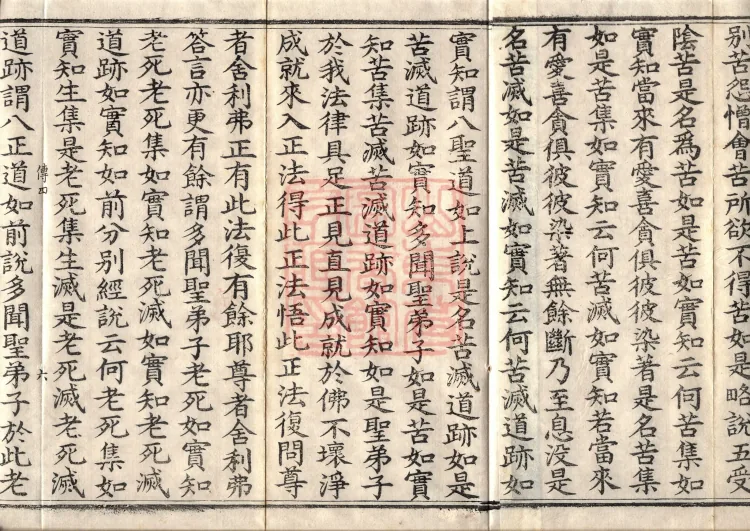 別苦怨憎會苦所欲不得苦如是略說五受
陰苦是名爲苦如是苦如實知云何苦集如
實知當來有愛喜貪俱彼彼染著是名苦集
如是苦集如實知云何苦滅如實知若當來
有愛喜貪俱彼彼染著無餘斷乃至息没是
名苦滅如是苦滅如實知云何苦滅道跡如
實知謂八聖道如上說是名苦滅道跡如是
苦滅道跡如實知多聞聖弟子如是苦如實
知苦集苦滅苦滅道跡如實知如是聖弟子
於我法律具足正見直見成就於佛不壞淨
成就來入正法得此正法悟此正法復問尊
者舍利弗正有此法復有餘耶尊者舍利弗
答言亦更有餘謂多聞聖弟子老死如實知
老死老死集如實知老死滅如實知老死滅
道跡如實知如前分別經說云何老死集如
實知生集是老死集生滅是老死滅老死滅
傳四 六
道跡謂八正道如前說多聞聖弟子於此老